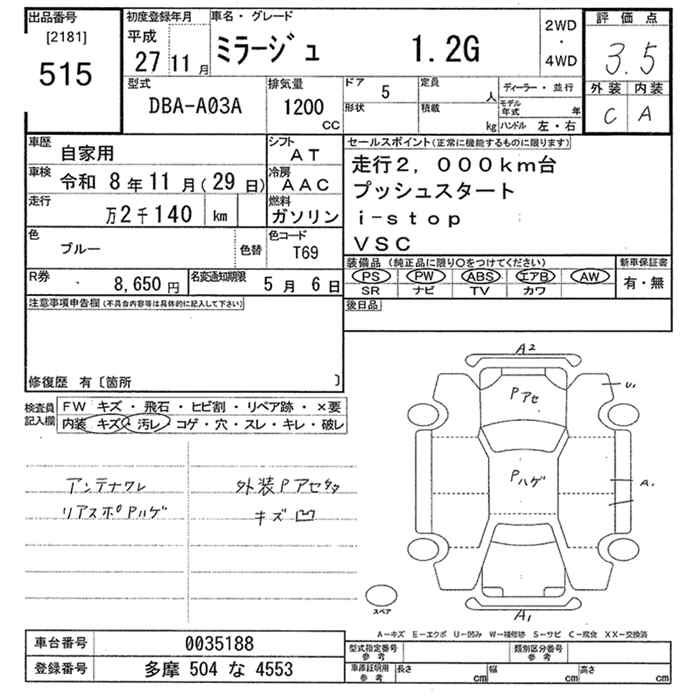 出品番号
[2181]
515
初度登録年月
平成
27 11 月
車名・グレード
ミラージュ 1.2G
2WD
・
4WD
評価点
3.5
外装 内装
C A
型式
DBA-A03A
排気量
1200
CC
ドア 5
形状
定員 人
積載 kg
ディーラー・並行
モデル年式 年
ハンドル 左・右
車歴
自家用
シフト
AT
車検
令和 8年 11月(29日)
冷房
AAC
走行
万2千140 km
燃料
ガソリン
色
ブルー
色替
色コード
T69
R券
8,650円
名変通知期限
5月 6日
セールスポイント(正常に機能するものに限ります)
走行2,000km台
プッシュスタート
i-stop
VSC
装備品(純正品に限り○をつけてください)
PS PW ABS エアB AW
SR ナビ TV カワ
新車保証書
有・無
後日品
注意事項申告欄(不具合内容等は具体的に記入して下さい)
修復歴 有〔箇所 〕
検査員
記入欄
FW キズ・飛石・ヒビ割・リペア跡・×要
内装 キズ・汚レ・コゲ・穴・スレ・キレ・破レ
アンテナワレ
リアスポPハゲ
外装Pアセタタ
キズ凹
A2
Pアセ
U1
Pハゲ
A1
A1
スペア
A-キズ E-エクボ U-凹み W-補修跡 S-サビ C-腐食 XX-交換済
車台番号
0035188
登録番号
多摩 504 な 4553
型式指定番号
参考
類別区分番号
参考
車庫証明用
参考
長さ cm
幅 cm
高さ cm